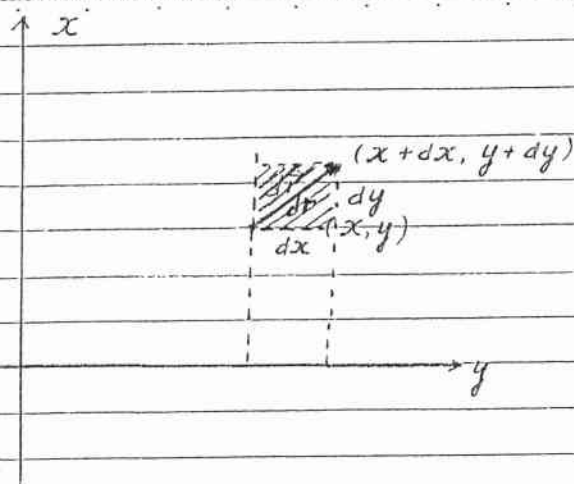 x
(x + dx, y + dy)
dy
(x, y)
dx
y